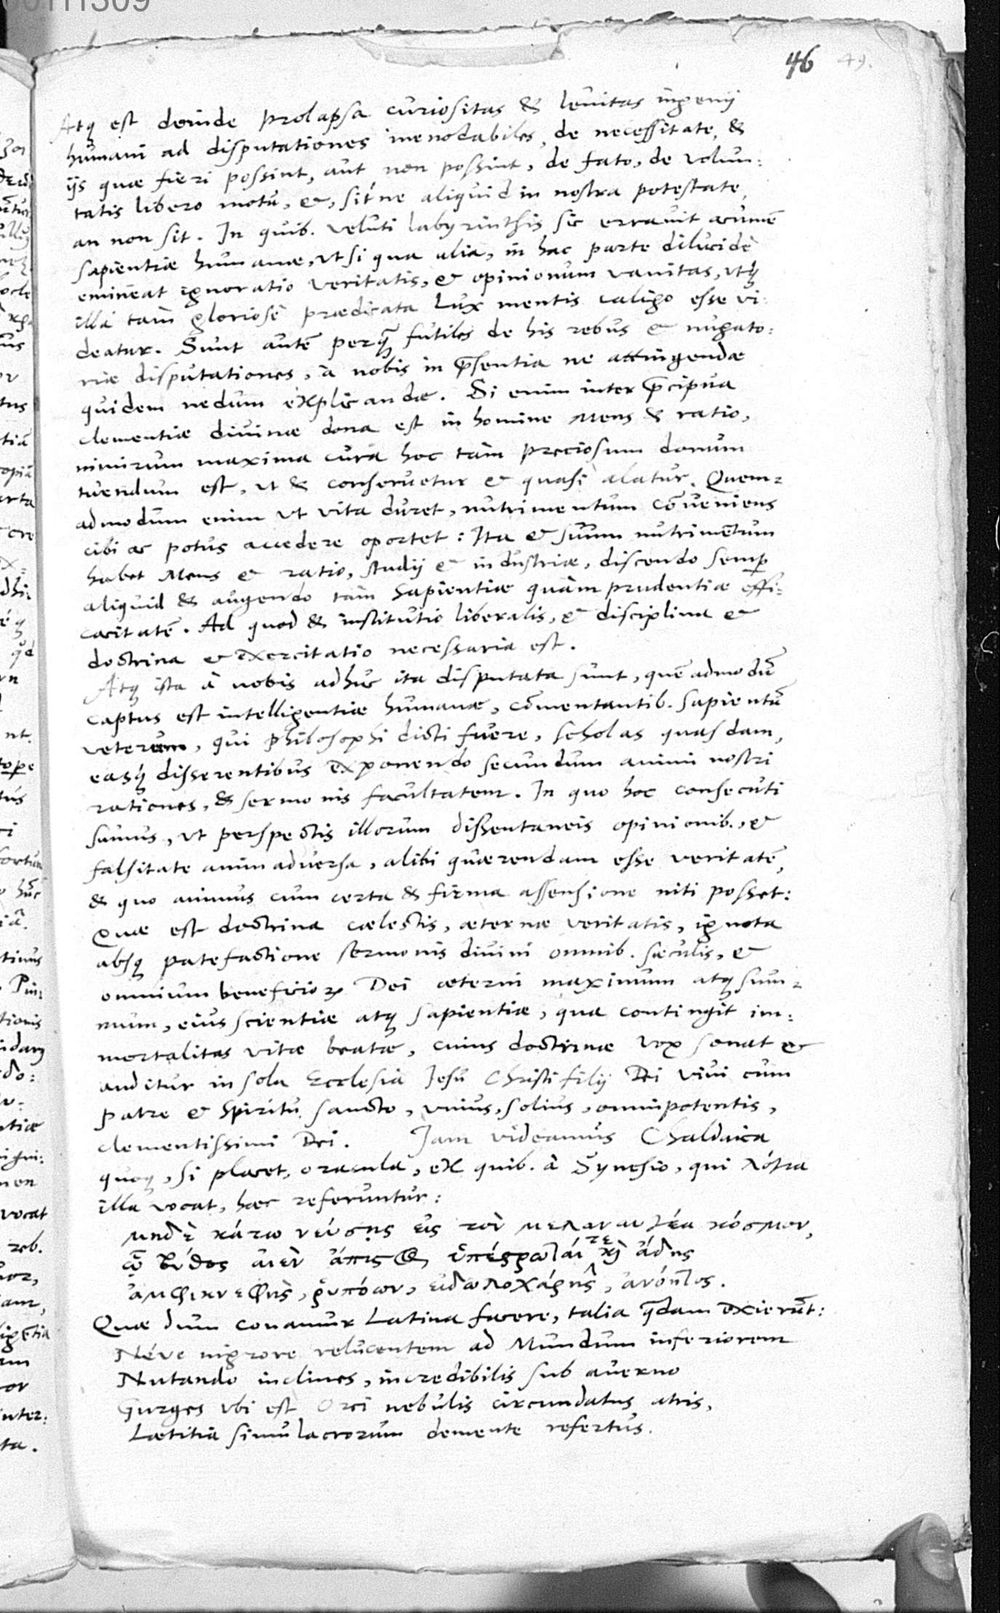 46 49.
Atq; est deinde prolapsa curiositas & levitas ingenij
humani ad disputationes inenodabiles, de necessitate, &
ijs quae fieri possint, aut non possint, de fato, de volun:
tatis libero motu, &, sit ne aliquid in nostra potestate,
an non sit. In quib. veluti labyrinthis sic erravit acumē
sapientiae humanae, ut si qua alia, in hac parte dilucidè
emineat ignoratio veritatis, & opinionum vanitas, utq;
illa tam gloriosè praedicata lux mentis caligo esse vi:
deatur. Sunt autē perq̄ futiles de his rebus & nugato:
riae disputationes, à nobis in p̄sentia ne attingendae
quidem nedum explicandae. Si enim inter p̄cipua
clementiae divinae dona est in homine Mens & ratio,
nimirum maxima cura hoc tam preciosum donum
tuendum est, ut & conservetur & quasi alatur. Quem-
admodum enim ut vita duret, nutrimentum conveniens
cibi ac potus accedere oportet: Ita & suum nutrimentum
habet Mens & ratio, studij & industriae, discendo semp
aliquid & augendo tam sapientiae quàm prudentiae effi:
cacitatē. Ad quod & institutio liberalis, & disciplina &
doctrina & exercitatio necessaria est.
Atq; ista à nobis adhuc ita disputata sunt, quē admodū
captus est intelligentiae humanae, cōmentantib. sapientū
veterum, qui philosophi dicti fuere, scholas quasdam,
easq; disserentibus exponendo secundum animi nostri
rationes, & sermonis facultatem. In quo hoc consecuti
sumus, ut perspectis illorum dissentaneis opinionib., &
falsitate animadversa, alibi quaerendam esse veritatē,
& quo animus cum certa & firma assensione niti posset:
Quae est doctrina caelestis, aeternae veritatis, ignota
absq; patefactione sermonis divini omnib. saeculis, &
omnium beneficior Dei aeterni maximum atq; sum-
mum, eius scientiae atq; sapientiae, qua contingit im:
mortalitas vitae beatae, cuius doctrinae vox sonat &
auditur in sola Ecclesia Jesu Christi filij Dei vivi cum
patre & Spiritu sancto, unius, solius, omnipotentis,
clementissimi Dei. Jam videamus Chaldaica
quoq;, si placet, oracula, ex quib. à Synesio, qui λόγια
illa vocat, haec referuntur:
μηδὲ κάτω νεύσῃς εἰς τὸν μελαναυγέα κόσμον,
ᾧ βύθος αἰὲν ἄπιστος ὑπέστρωταί τε καὶ ᾅδης
ἀμφικνεφὴς, ῥυπόων, εἰδωλοχαρὴς, ἀνόητος.
Quae dum conamur Latina facere, talia q̄dam exierūt:
Neve nigrore relucentem ad Mundum inferiorem
Nutando inclines, incredibilis sub averno
Gurges ubi est Orci nebulis circundatus atris,
Laetitia simulacrorum demente refertus.